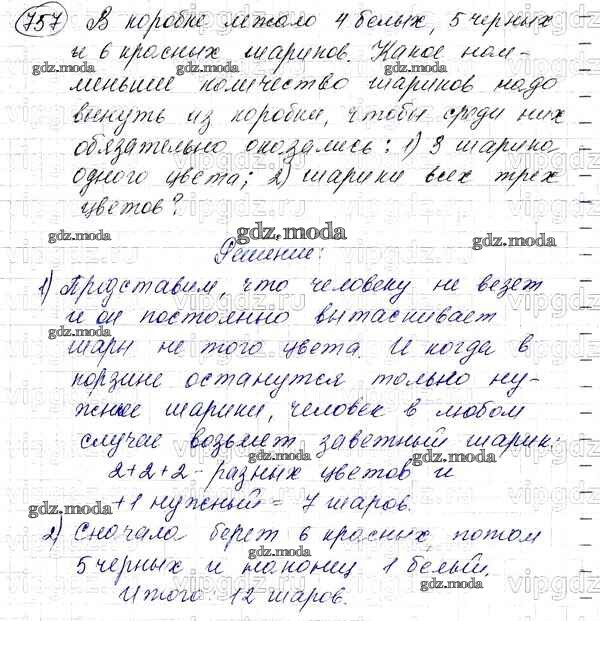 757 В коробке лежало 4 белых, 5 черных
и 6 красных шариков. Какое наи-
меньшее количество шариков надо
вынуть из коробки, чтобы среди них
обязательно оказались: 1) 3 шарика
одного цвета; 2) шарики всех трех
цветов?
Решение:
1) Представим, что человеку не везет
и он постоянно вытаскивает
шары не того цвета. И когда в
корзине останутся только ну-
жные шарики, человек в любом
случае возьмет заветный шарик:
2+2+2 - разных цветов и
+1 нужный = 7 шаров.
2) Сначала берет 6 красных потом
5 черных и наконец 1 белый.
Итого: 12 шаров.
gdz.moda
vipgdz.ru